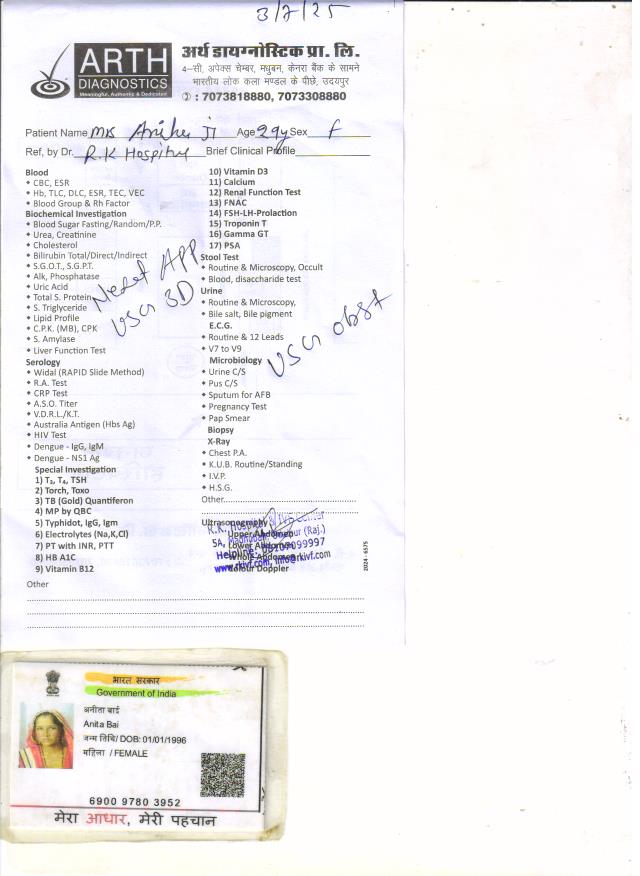 3/7/25
ARTH
DIAGNOSTICS
Meaningful, Authentic & Dedicated
अर्थ डायग्नोस्टिक प्रा. लि.
4–सी, अपेक्स चेम्बर, मधुबन, केनरा बैंक के सामने
भारतीय लोक कला मण्डल के पीछे, उदयपुर
: 7073818880, 7073308880
Patient Name Age 29y Sex F
Ref, by Dr. R.K Hospital Brief Clinical Profile
Blood
CBC, ESR
Hb, TLC, DLC, ESR, TEC, VEC
Blood Group & Rh Factor
Biochemical Investigation
Blood Sugar Fasting/Random/P.P.
Urea, Creatinine
Cholesterol
Bilirubin Total/Direct/Indirect
S.G.O.T., S.G.P.T.
Alk, Phosphatase
Uric Acid
Total S. Protein
S. Triglyceride
Lipid Profile
C.P.K. (MB), CPK
S. Amylase
Liver Function Test
Serology
Widal (RAPID Slide Method)
R.A. Test
CRP Test
A.S.O. Titer
V.D.R.L./K.T.
Australia Antigen (Hbs Ag)
HIV Test
Dengue - IgG, IgM
Dengue - NS1 Ag
Special Investigation
1) T₃, T₄, TSH
2) Torch, Toxo
3) TB (Gold) Quantiferon
4) MP by QBC
5) Typhidot, IgG, Igm
6) Electrolytes (Na,K,Cl)
7) PT with INR, PTT
8) HB A1C
9) Vitamin B12
10) Vitamin D3
11) Calcium
12) Renal Function Test
13) FNAC
14) FSH-LH-Prolaction
15) Troponin T
16) Gamma GT
17) PSA
Stool Test
Routine & Microscopy, Occult
Blood, disaccharide test
Urine
Routine & Microscopy,
Bile salt, Bile pigment
E.C.G.
Routine & 12 Leads
V7 to V9
Microbiology
Urine C/S
Pus C/S
Sputum for AFB
Pregnancy Test
Pap Smear
Biopsy
X-Ray
Chest P.A.
K.U.B. Routine/Standing
I.V.P.
H.S.G.
Other
Ultrasonography
Upper Abdomen
Lower Abdomen
Whole Abdomen
Colour Doppler
APP
USG 3D
USG obst
R.K. Hospital & IVF Center
5A, Madhuban, Udaipur (Raj.)
www.rkivf.com, info@rkivf.com
2024 - 6575
Other
भारत सरकार
Government of India
अनीता बाई
Anita Bai
जन्म तिथि/ DOB: 01/01/1996
महिला / FEMALE
6900 9780 3952
मेरा आधार, मेरी पहचान